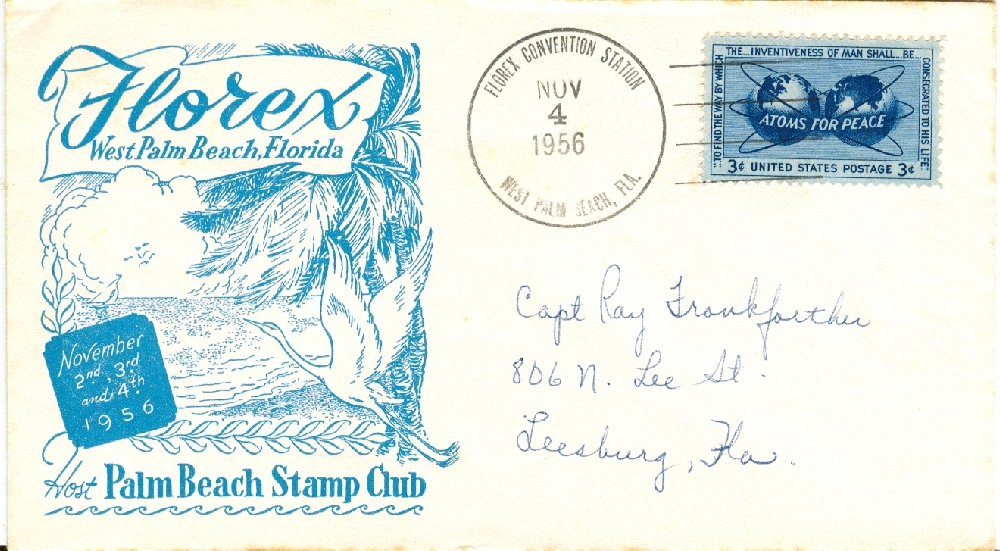 Florex
West Palm Beach, Florida
November
2nd, 3rd
and 4th
1956
Host Palm Beach Stamp Club
FLOREX CONVENTION STATION
NOV
4
1956
WEST PALM BEACH, FLA.
"TO FIND THE WAY BY WHICH THE...INVENTIVENESS OF MAN SHALL...BE CONSECRATED TO HIS LIFE"
ATOMS FOR PEACE
3¢ UNITED STATES POSTAGE 3¢
Capt Ray Frankforther
806 N. Lee St.
Leesburg, Fla.